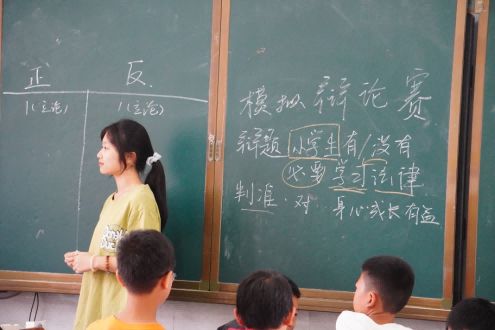 正 反
1(立论) 1(立论)
模拟辩论赛
辩题 小学生有/没有
必要学习法律
判准·对 身心成长有益